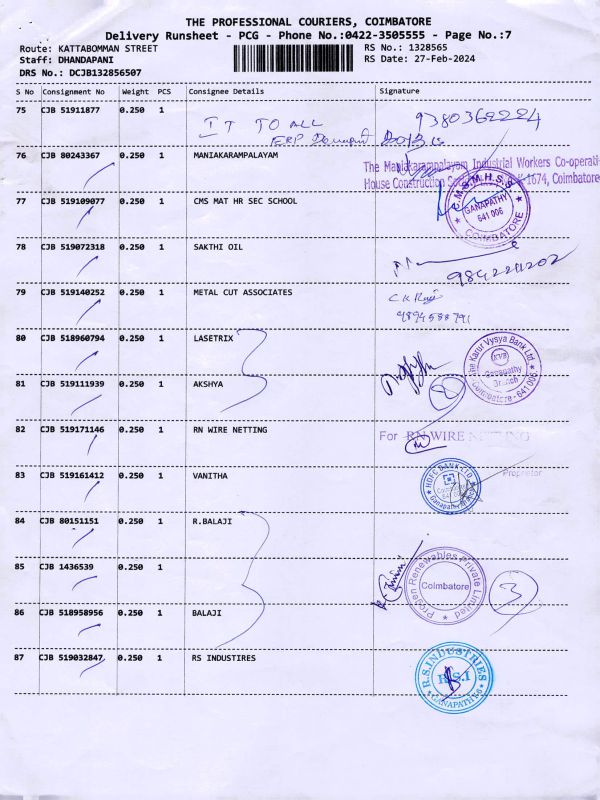 THE PROFESSIONAL COURIERS, COIMBATORE
Delivery Runsheet - PCG - Phone No.:0422-3505555 - Page No.:7
Route: KATTABOMMAN STREET RS No.: 1328565
Staff: DHANDAPANI RS Date: 27-Feb-2024
DRS No.: DCJB132856507
S No Consignment No Weight PCS Consignee Details Signature
75 CJB 51911877 0.250 1
IT TO ALL 9380362224
ERP
76 CJB 80243367 0.250 1 MANIAKARAMPALAYAM
The Maniakarampalayam Industrial Workers Co-operati
House Construction K-1674, Coimbatore
77 CJB 519109077 0.250 1 CMS MAT HR SEC SCHOOL
C.M.S.M.H.S.S. GANAPATHY 641 006 COIMBATORE
78 CJB 519072318 0.250 1 SAKTHI OIL
9842241202
79 CJB 519140252 0.250 1 METAL CUT ASSOCIATES
9894588791
80 CJB 518960794 0.250 1 LASETRIX
The Karur Vysya Bank Ltd. KVB Ganapathy Branch Coimbatore - 641 006
81 CJB 519111939 0.250 1 AKSHYA
8
82 CJB 519171146 0.250 1 RN WIRE NETTING
For RN WIRE NETTING
83 CJB 519161412 0.250 1 VANITHA
Proprietor
HDFC BANK LTD Ganapathy
84 CJB 80151151 0.250 1 R.BALAJI
85 CJB 1436539 0.250 1
Progen Renewables Private Limited Coimbatore
3
86 CJB 518958956 0.250 1 BALAJI
87 CJB 519032847 0.250 1 RS INDUSTIRES
R.S.INDUSTRIES R.S.I GANAPATHY-6